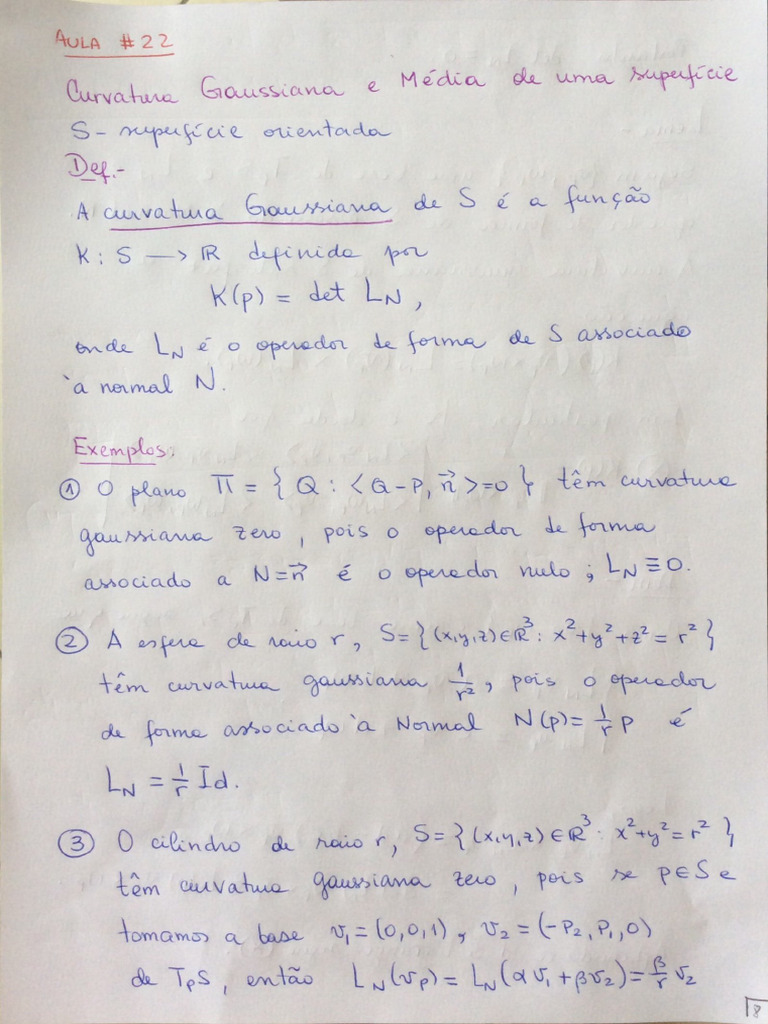 AULA #22
Curvatura Gaussiana e Média de uma superfície
S - superfície orientada
Def.-
A curvatura Gaussiana de S é a função
K: S → ℝ definida por
K(p) = det L_N,
onde L_N é o operador de forma de S associado
à normal N.
Exemplos:
① O plano Π = { Q : <Q-P, n⃗> = 0 } têm curvatura
gaussiana zero, pois o operador de forma
associado a N = n⃗ é o operador nulo; L_N ≡ 0.
② A esfera de raio r, S = {(x,y,z) ∈ ℝ³ : x² + y² + z² = r²}
têm curvatura gaussiana 1/r², pois o operador
de forma associado à Normal N(p) = 1/r p é
L_N = 1/r Id.
③ O cilindro de raio r, S = {(x,y,z) ∈ ℝ³ : x² + y² = r²}
têm curvatura gaussiana zero, pois se p ∈ S e
tomamos a base v₁ = (0,0,1), v₂ = (-P₂, P₁, 0)
de TₚS, então L_N(vₚ) = L_N(αv₁ + βv₂) = β/r v₂
8